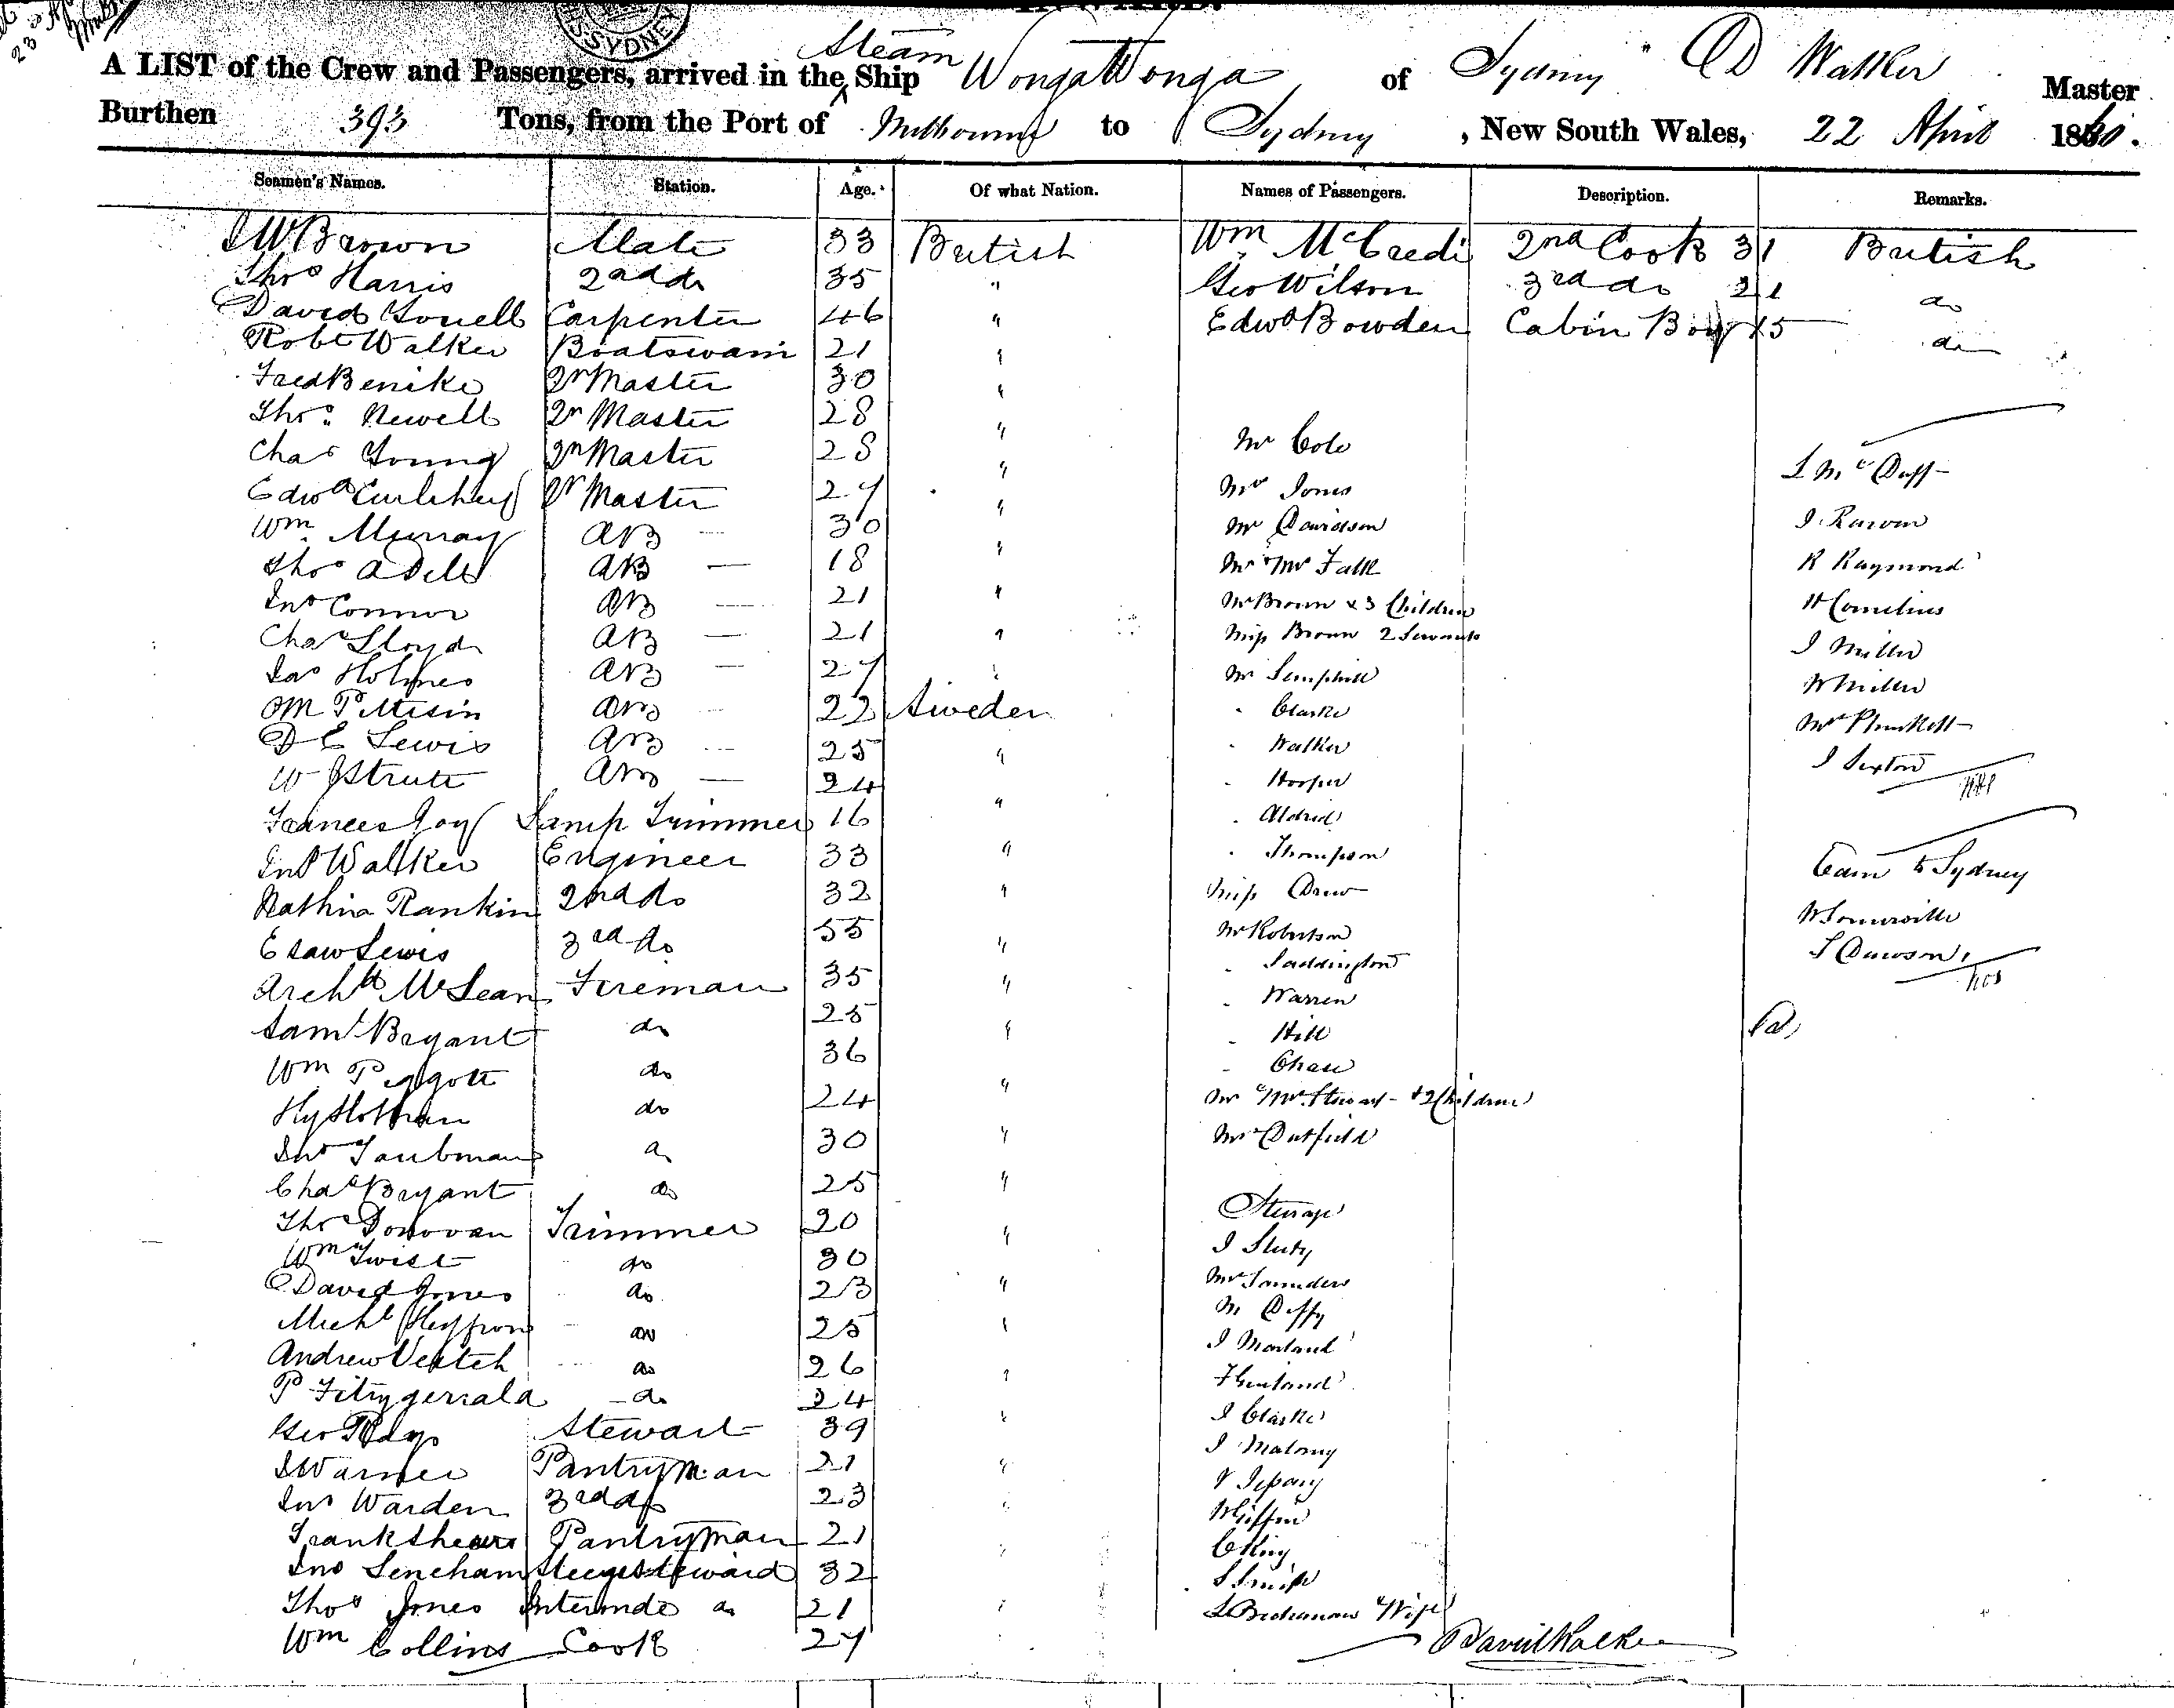 SYDNEY
A LIST of the Crew and Passengers, arrived in the Steam Ship Wonga Wonga of Sydney D Walker Master
Burthen 393 Tons, from the Port of Melbourne to Sydney, New South Wales, 22 April 1860.
Seamen's Names. Station. Age. Of what Nation. Names of Passengers. Description. Remarks.
J W Brown Mate 33 British Wm McCredi 2nd Cook 31 British
Thos Harris 2nd do 35 " Geo Wilson 3rd do 21 do
David Youell Carpenter 46 " Edwd Bowden Cabin Boy 15 do
Robt Walker Boatswain 21 "
Fred Benike Qr Master 30 "
Thos Newell Qr Master 28 "
Chas Young Qr Master 28 "
Edwd Qr Master 27 "
Wm Murray AB 30 "
Thos AB 18 "
Jno Connor AB 21 "
Chas Lloyd AB 21 "
Jas Holmes AB 27 "
AB 22 Sweden
D E Lewis AB 25 "
W J Strutt AB 24
Frances Joy Lamp Trimmer 16 "
Jno Walker Engineer 33 "
Rankin 2nd do 32 "
Esaw Lewis 3rd do 55 "
Archd McLean Fireman 35 "
Saml Bryant do 25 "
Wm Piggott do 36
Hy do 24 "
Jno Taubman do 30 "
Chas Bryant do 25 "
Thos Donovan Trimmer 20 "
Wm Twist do 30
David Jones do 23 "
Michl Heffron do 25 "
Andrew Veitch do 26 "
P Fitzygerrald do 24
Geo Stewart 39 "
J Warner Pantryman 21 "
Jno Warden 3rd do 23 "
Frank Shears Pantryman 21 "
Jno Leneham Steward 32
Thos Jones do 21 "
Wm Collins Cook 27 "
Mr Cole
Mr Jones
Mr Davidson
Mr & Mrs Falk
Mrs Brown & 3 Children
Miss Brown 2 Servants
Mr Semphill
" Clarke
" Walker
" Hooper
" Aldrid
" Thompson
Miss Drew
Mr Robertson
" Saddington
" Warren
" Hill
" Chase
Mr & Mrs Stewart & 2 Children
Mr Dutfield
Steerage
J
Mrs Saunders
M Duffy
J Morland
J Clarke
J Malony
W Giffin
C King
S Smith
Buchanan & Wife
David Walker
L McDuff
J
R Raymond
H Cornelius
J Miller
W Miller
Mrs Plunkett
J Sexton
Eden to Sydney
W Somerville
J Dawson